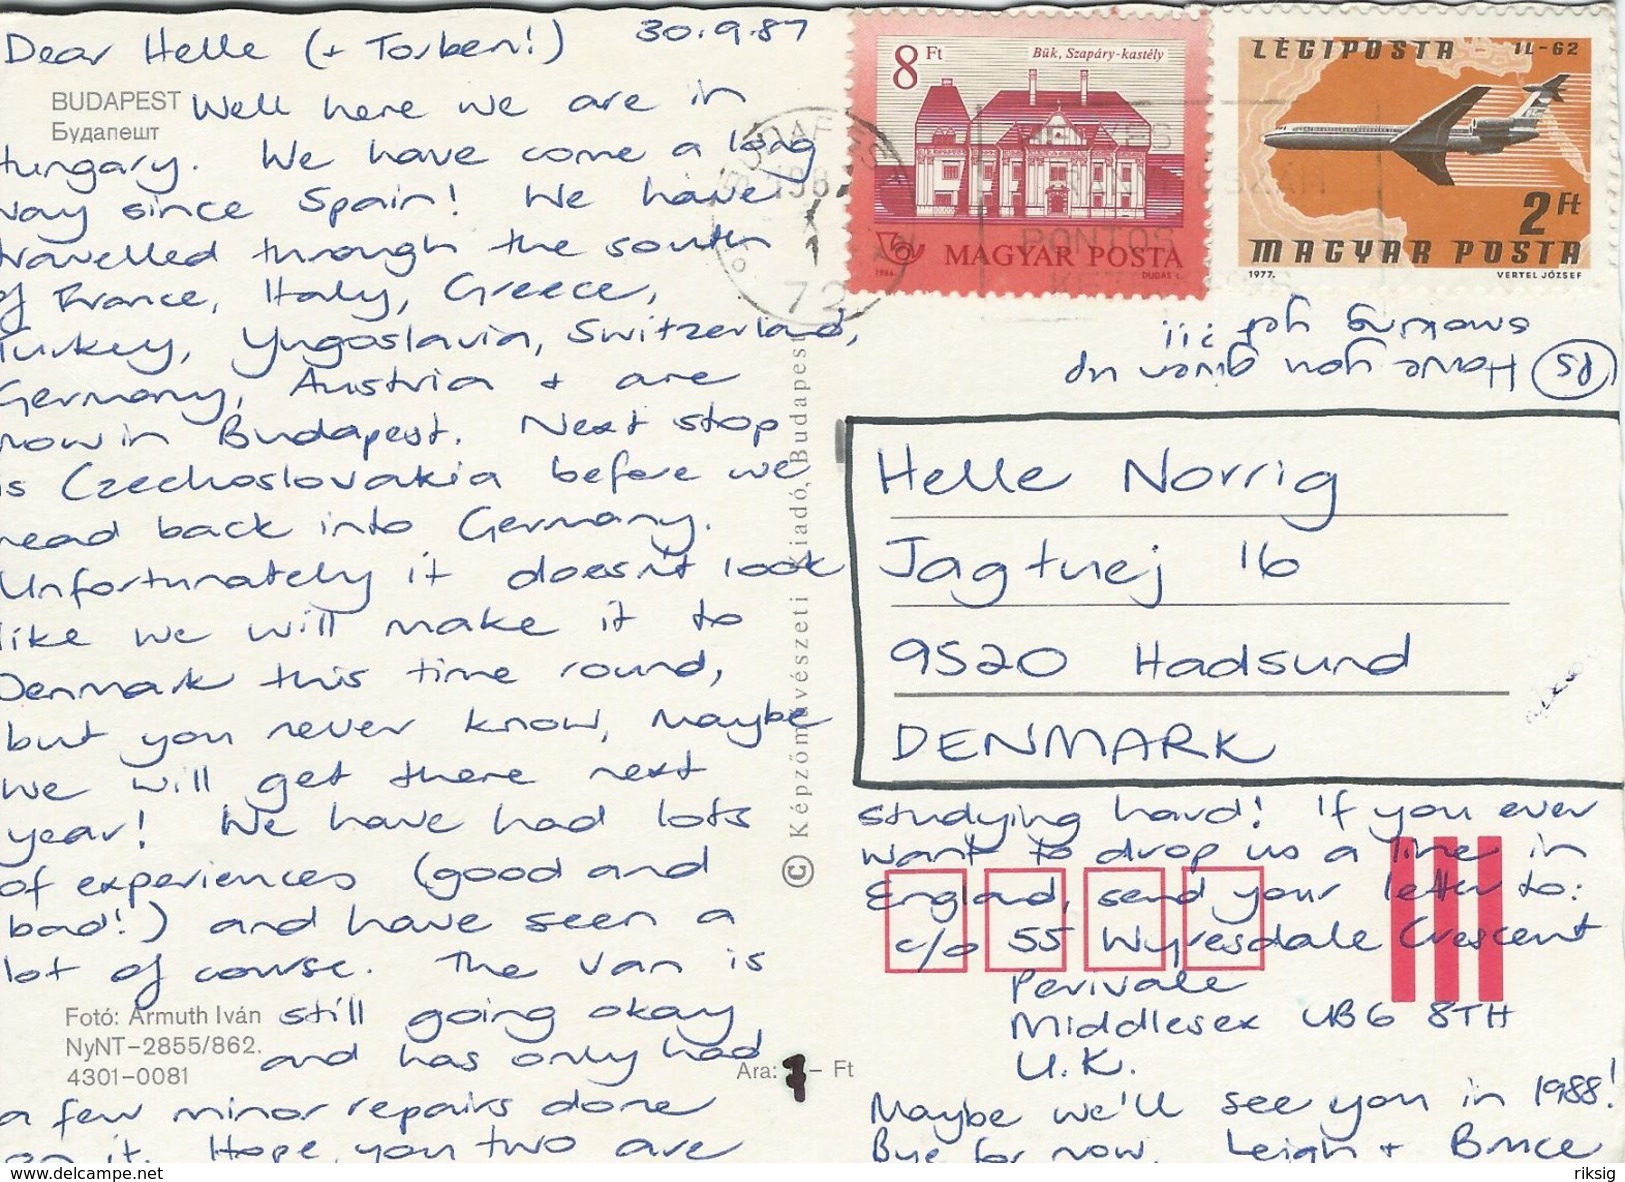 Dear Helle (+ Torben!) 30.9.87
BUDAPEST
Будапешт
Well here we are in
Hungary. We have come a long
way since Spain! We have
travelled through the south
of France, Italy, Greece,
Turkey, Yugoslavia, Switzerland,
Germany, Austria + are
now in Budapest. Next stop
is Czechoslovakia before we
head back into Germany.
Unfortunately it doesn't look
like we will make it to
Denmark this time round,
but you never know, maybe
we will get there next
year! We have had lots
of experiences (good and
bad!) and have seen a
lot of course. The van is
still going okay
and has only had
a few minor repairs done
on it. Hope you two are
Fotó: Armuth Iván
NyNT–2855/862.
4301–0081
Ára: 7 – Ft
© Képzőművészeti Kiadó, Budapest
8 Ft
Bük, Szapáry-kastély
MAGYAR POSTA
1986.
DUDÁS L.
LÉGIPOSTA IL-62
2 Ft
MAGYAR POSTA
1977. VERTEL JÓZSEF
BUDAPEST
198
X
1
72
PONTOS
PS Have you given up
smoking yet?!!
Helle Norrig
Jagtvej 16
9520 Hadsund
DENMARK
studying hard! If you ever
want to drop us a line in
England, send your letter to:
c/o 55 Wyresdale Crescent
Perivale
Middlesex UB6 8TH
U.K.
Maybe we'll see you in 1988!
Bye for now, Leigh + Bruce
www.delcampe.net
riksig